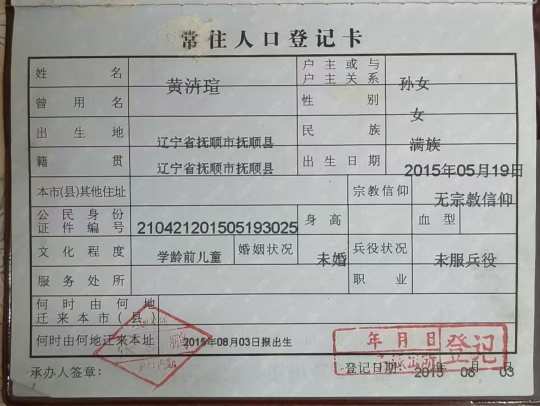 常住人口登记卡
姓名 黄㳽瑄 户主或与户主关系 孙女
曾用名 性别 女
出生地 辽宁省抚顺市抚顺县 民族 满族
籍贯 辽宁省抚顺市抚顺县 出生日期 2015年05月19日
本市(县)其他住址 宗教信仰 无宗教信仰
公民身份证件编号 210421201505193025 身高 血型
文化程度 学龄前儿童 婚姻状况 未婚 兵役状况 未服兵役
服务处所 职业
何时由何地迁来本市(县)
何时由何地迁来本址 2015年08月03日报出生
年月日 登记
承办人签章: 登记日期: 2015年08月03日